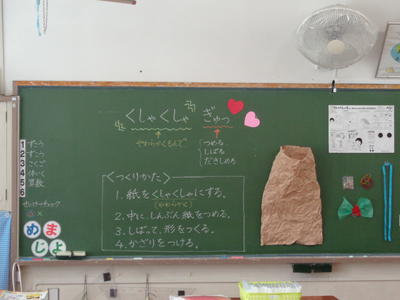 くしゃくしゃ ぎゅっ
やわらかくもんで
つめる
しばる
だきしめる
<つくりかた>
1. 紙をくしゃくしゃにする。
(やわらかく)
2. 中に、しんぶん紙をつめる。
3. しばって、形をつくる。
4. かざりをつける。
1 ずこう
2 ずこう
3 こくご
4 体いく
5 算数
6
めま
じょ